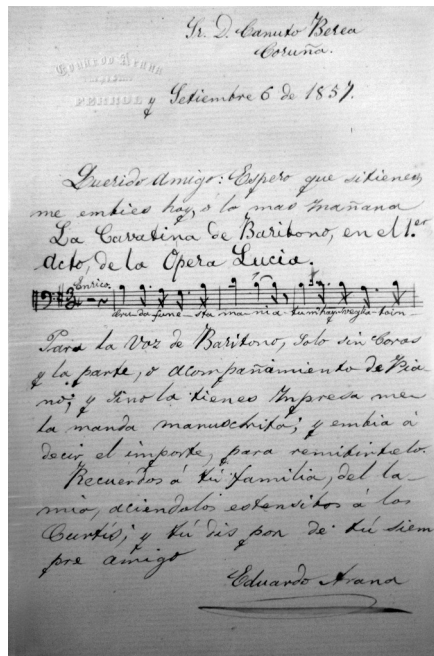 Sr. D. Canuto Berea
Coruña.
EDUARDO ARANA
FERROL
y Setiembre 6 de 1857.
Querido Amigo: Espero que si tienes,
me embies hoy, ó lo mas mañana
La Cavatina de Baritono, en el 1.er
Acto, de la Opera Lucia.
Enrico.
Cru-da fune-sta ma-nia tu m'hay sveglia-to in-
Para la voz de Baritono, Solo sin Coros
y la parte, o acompañamiento de Pia
no; y sino la tienes Inpresa me
la manda manuschrita; y embia á
decir el importe, para remitirtelo.
Recuerdos á tú familia, del la
mia, aciendolos estensitos á los
Curtis; y tú dis pon de tú siem
pre amigo
Eduardo Arana